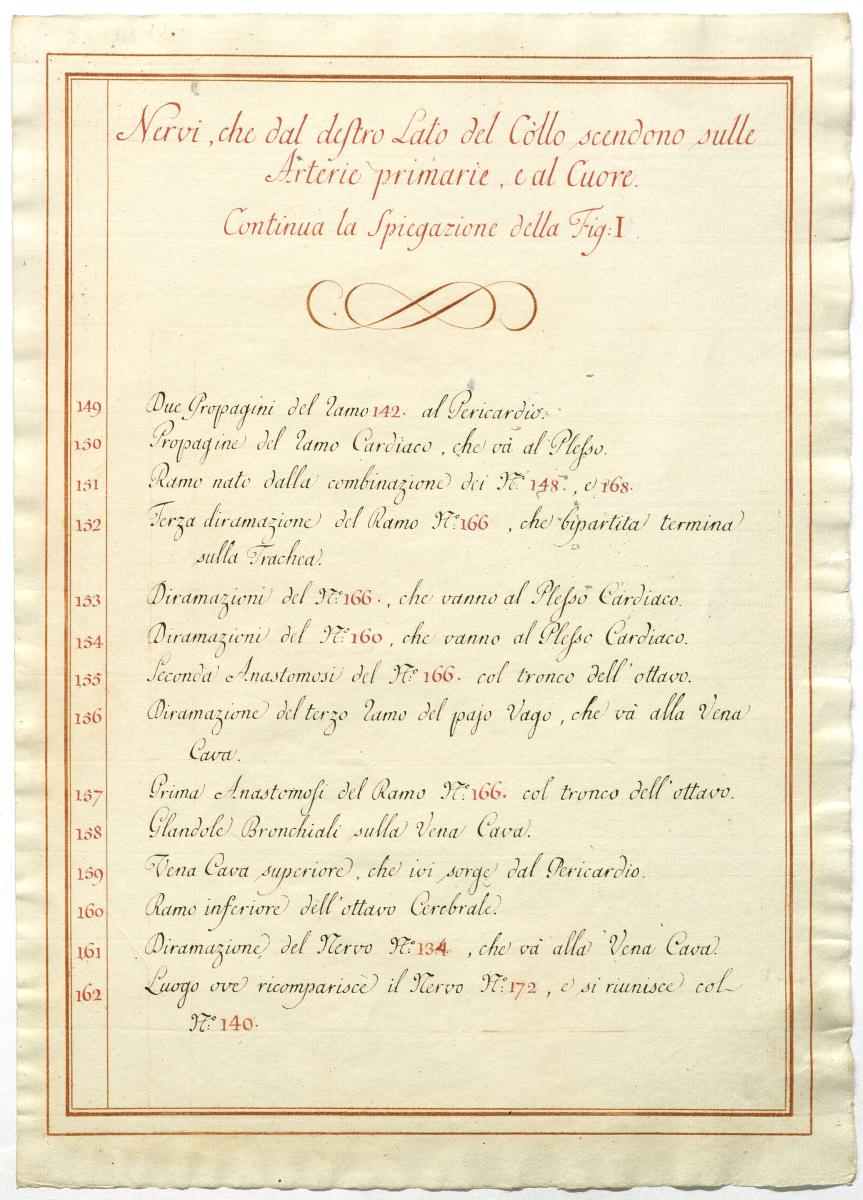 Nervi, che dal destro Lato del Còllo scendono sulle
Arterie primarie, e al Cuore.
Continua la Spiegazione della Fig: I.
149 Due Propagini del Ramo 142. al Pericardio.
150 Propagine del Ramo Cardiaco, che và al Plesso.
151 Ramo nato dalla combinazione dei N.º 148., e 168.
152 Terza diramazione del Ramo N.º 166, che bipartita termina
sulla Trachea.
153 Diramazioni del N.º 166., che vanno al Plesso Cardiaco.
154 Diramazioni del N.º 160, che vanno al Plesso Cardiaco.
155 Seconda Anastomosi del N.º 166. col tronco dell'ottavo.
156 Diramazione del terzo Ramo del pajo Vago, che và alla Vena
Cava.
157 Prima Anastomosi del Ramo N.º 166. col tronco dell'ottavo.
158 Glandole Bronchiali sulla Vena Cava.
159 Vena Cava superiore, che ivi sorge dal Pericardio.
160 Ramo inferiore dell'ottavo Cerebrale.
161 Diramazione del Nervo N.º 134, che và alla Vena Cava.
162 Luogo ove ricomparisce il Nervo N.º 172, e si riunisce col
N.º 140.